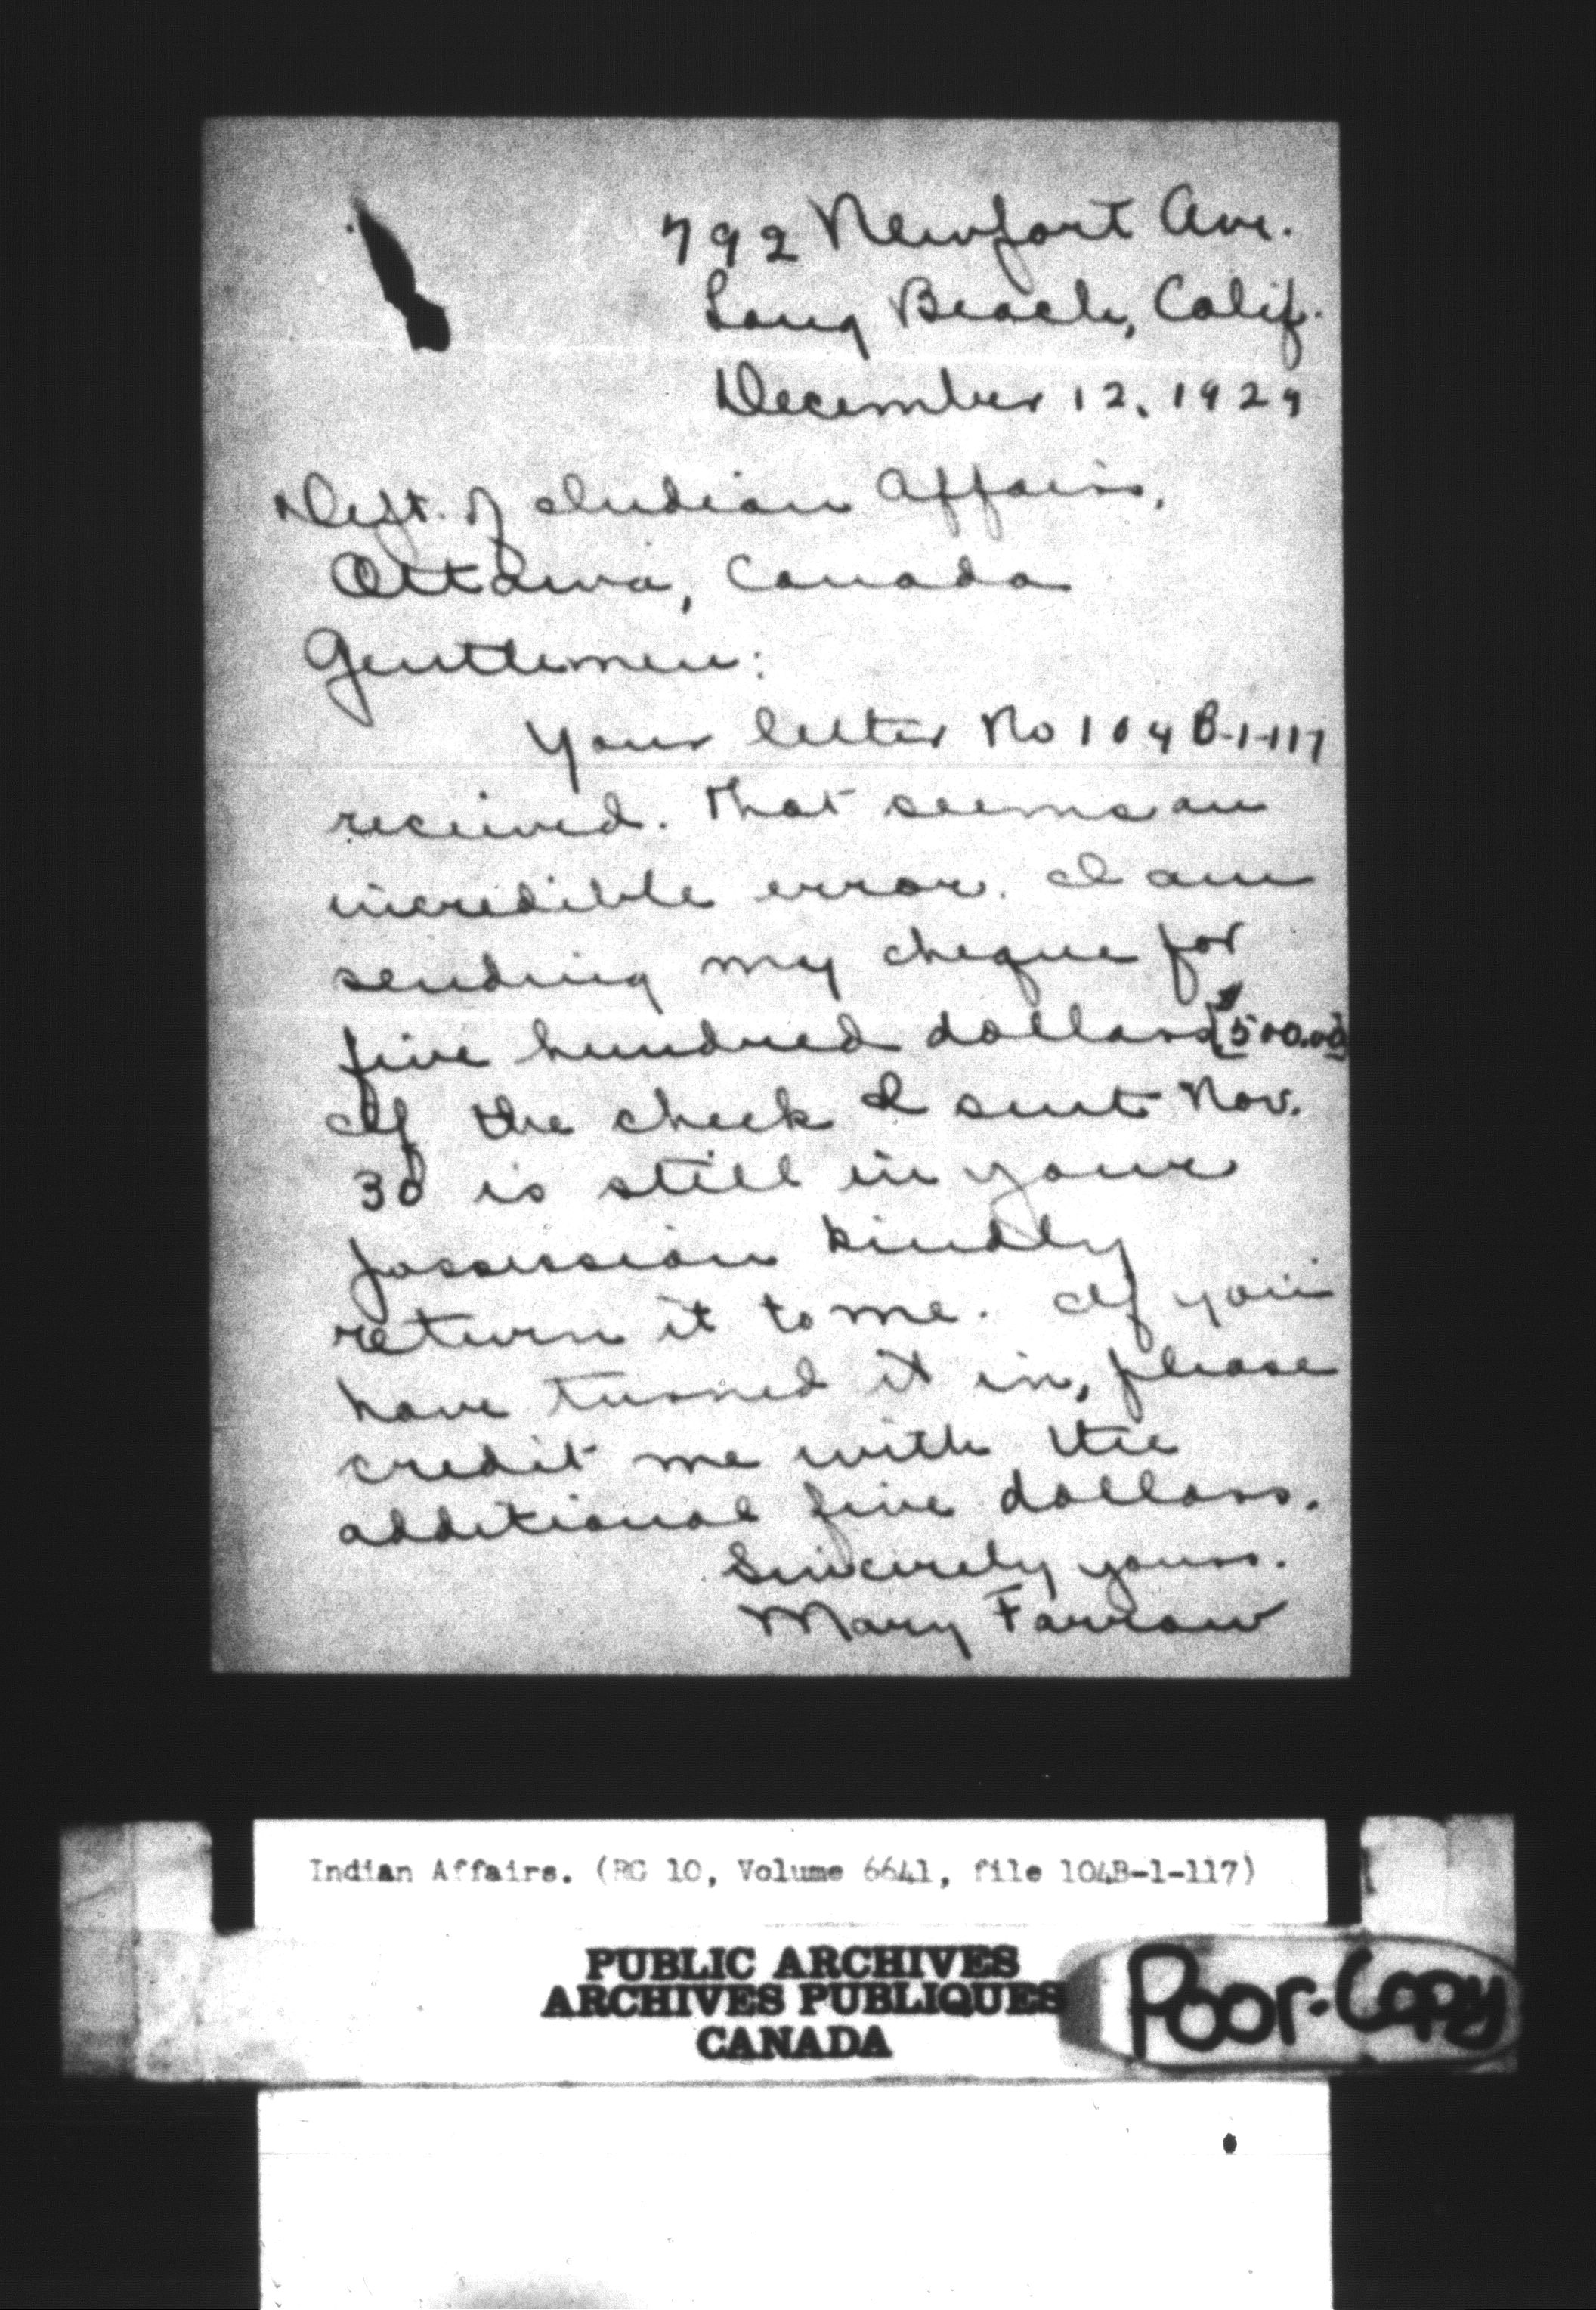 792 Newport Ave.
Long Beach, Calif.
December 12, 1929
Dept. of Indian Affairs,
Ottawa, Canada
Gentlemen:
Your letter No 104 B-1-117
received. That seems an
incredible error. I am
sending my cheque for
five hundred dollars ($500.00)
If the check I sent Nov.
30 is still in your
possession kindly
return it to me. If you
have turned it in, please
credit me with the
additional five dollars.
Sincerely yours.
Mary Farrow
Indian Affairs. (RG 10, Volume 6641, file 104B-1-117)
PUBLIC ARCHIVES
ARCHIVES PUBLIQUES
CANADA
Poor-Copy